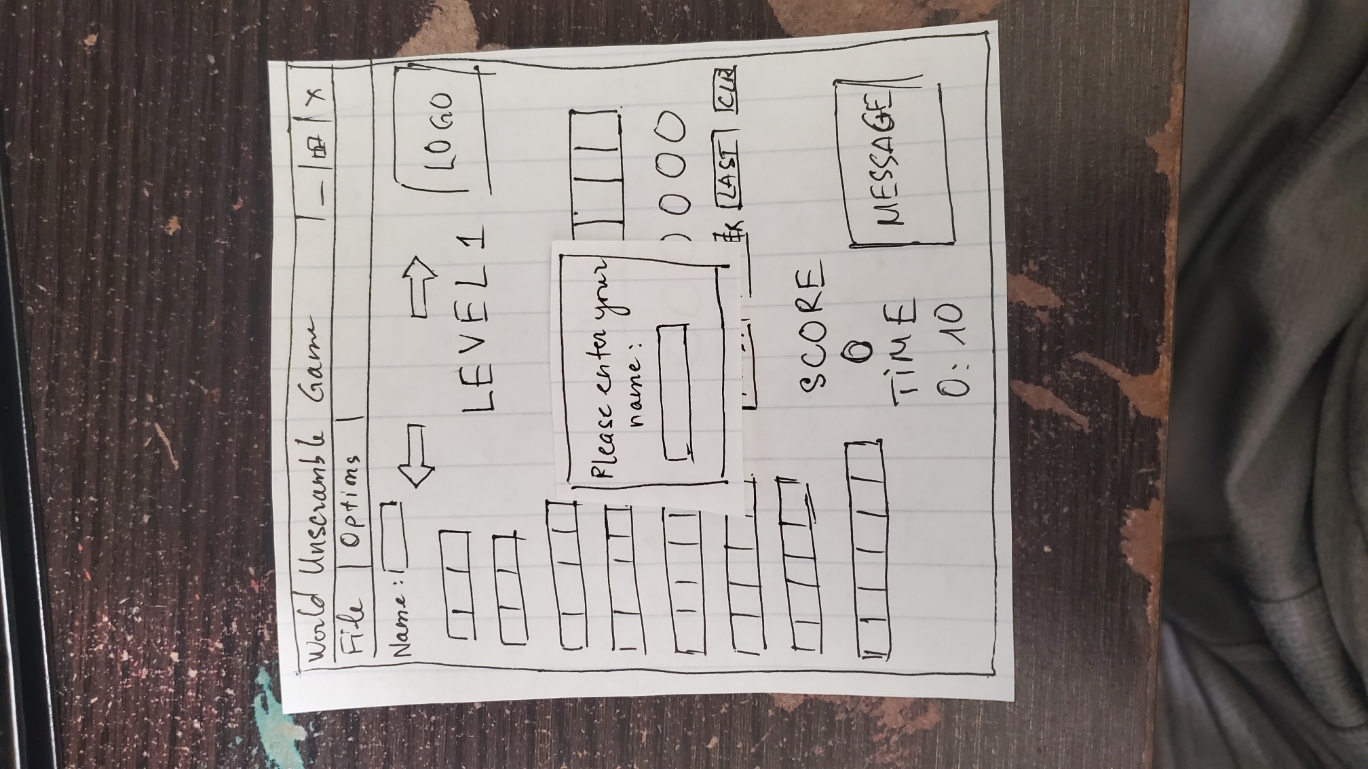 World Unscramble Game _ X
File Options
Name:
LOGO
LEVEL 1
Please enter your
name:
0000
LAST CLR
SCORE
0
TIME
0:10
MESSAGE